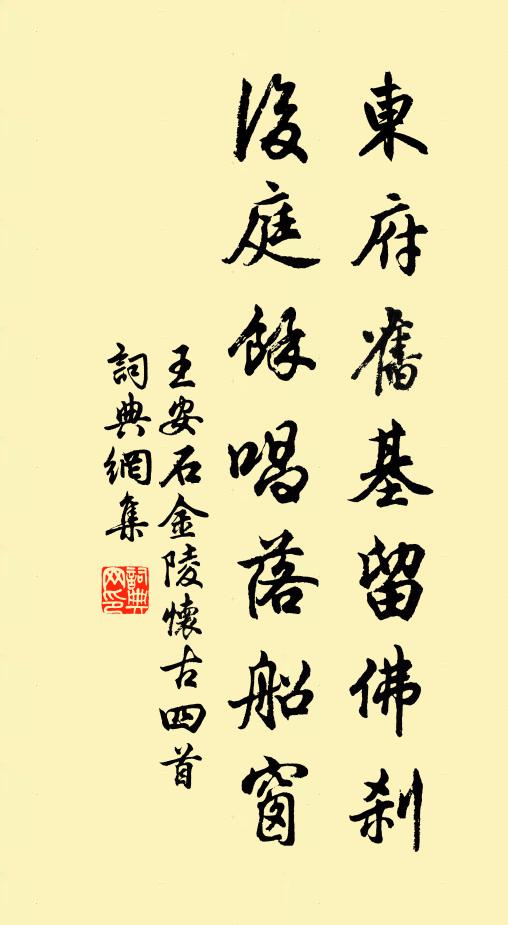 東府舊基留佛刹
後庭餘唱落船窗
王安石金陵懷古四首
詞典網集
詞典網印